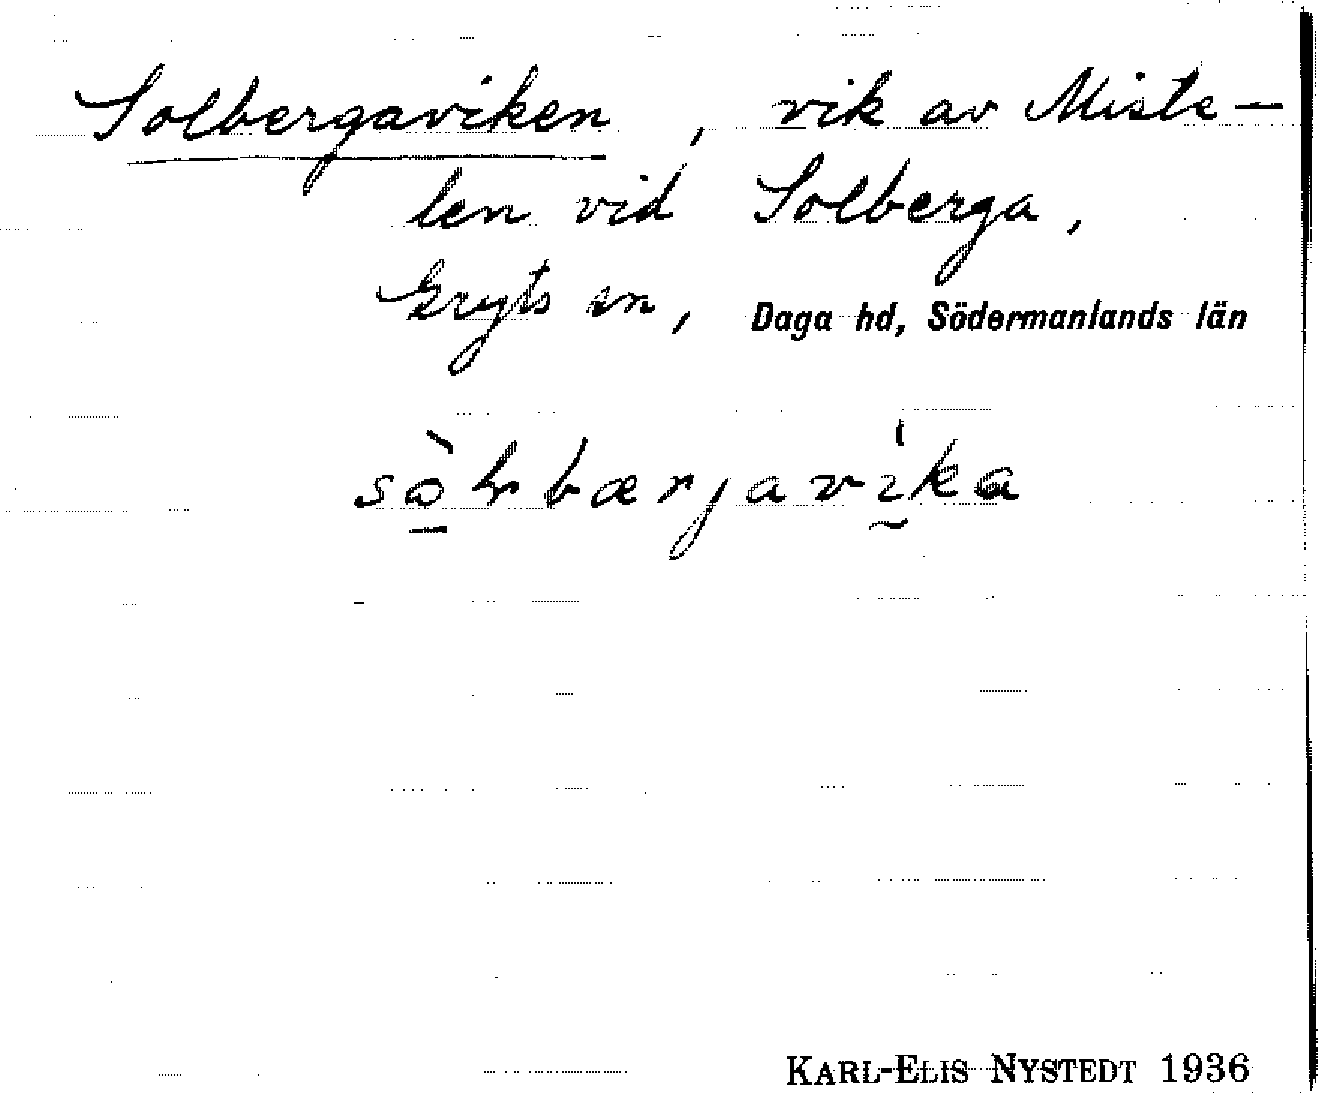 Solbergaviken, vik av Miste-
len vid Solberga,
Gryts sn, Daga hd, Södermanlands län
KARL-ELIS NYSTEDT 1936